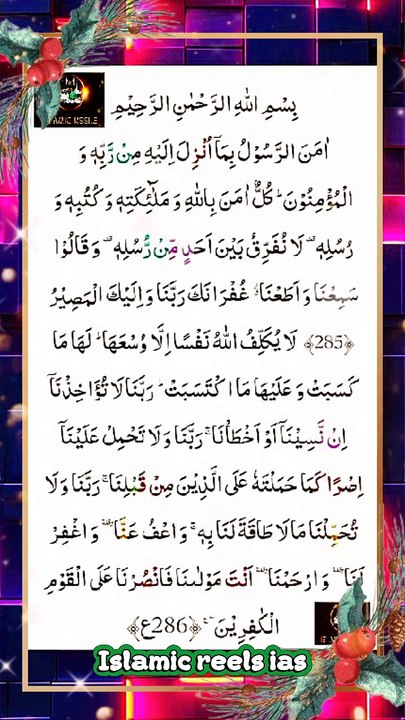 بِسْمِ اللهِ الرَّحْمٰنِ الرَّحِيْمِ
اٰمَنَ الرَّسُوْلُ بِمَاۤ اُنْزِلَ اِلَيْهِ مِنْ رَّبِّهٖ وَ
الْمُؤْمِنُوْنَ ؕ كُلٌّ اٰمَنَ بِاللهِ وَ مَلٰٓئِكَتِهٖ وَ كُتُبِهٖ وَ
رُسُلِهٖ ۟ لَا نُفَرِّقُ بَيْنَ اَحَدٍ مِّنْ رُّسُلِهٖ ۟ وَ قَالُوْا
سَمِعْنَا وَ اَطَعْنَا ۫ غُفْرَانَكَ رَبَّنَا وَ اِلَيْكَ الْمَصِيْرُ
﴿285﴾ لَا يُكَلِّفُ اللهُ نَفْسًا اِلَّا وُسْعَهَا ؕ لَهَا مَا
كَسَبَتْ وَ عَلَيْهَا مَا اكْتَسَبَتْ ؕ رَبَّنَا لَا تُؤَاخِذْنَاۤ
اِنْ نَّسِيْنَاۤ اَوْ اَخْطَاْنَا ۚ رَبَّنَا وَ لَا تَحْمِلْ عَلَيْنَاۤ
اِصْرًا كَمَا حَمَلْتَهٗ عَلَى الَّذِيْنَ مِنْ قَبْلِنَا ۚ رَبَّنَا وَ لَا
تُحَمِّلْنَا مَا لَا طَاقَةَ لَنَا بِهٖ ۚ وَ اعْفُ عَنَّا ۥ وَ اغْفِرْ
لَنَا ۥ وَ ارْحَمْنَا ۥ اَنْتَ مَوْلٰىنَا فَانْصُرْنَا عَلَى الْقَوْمِ
الْكٰفِرِيْنَ ﴿286ع﴾
Islamic reels ias